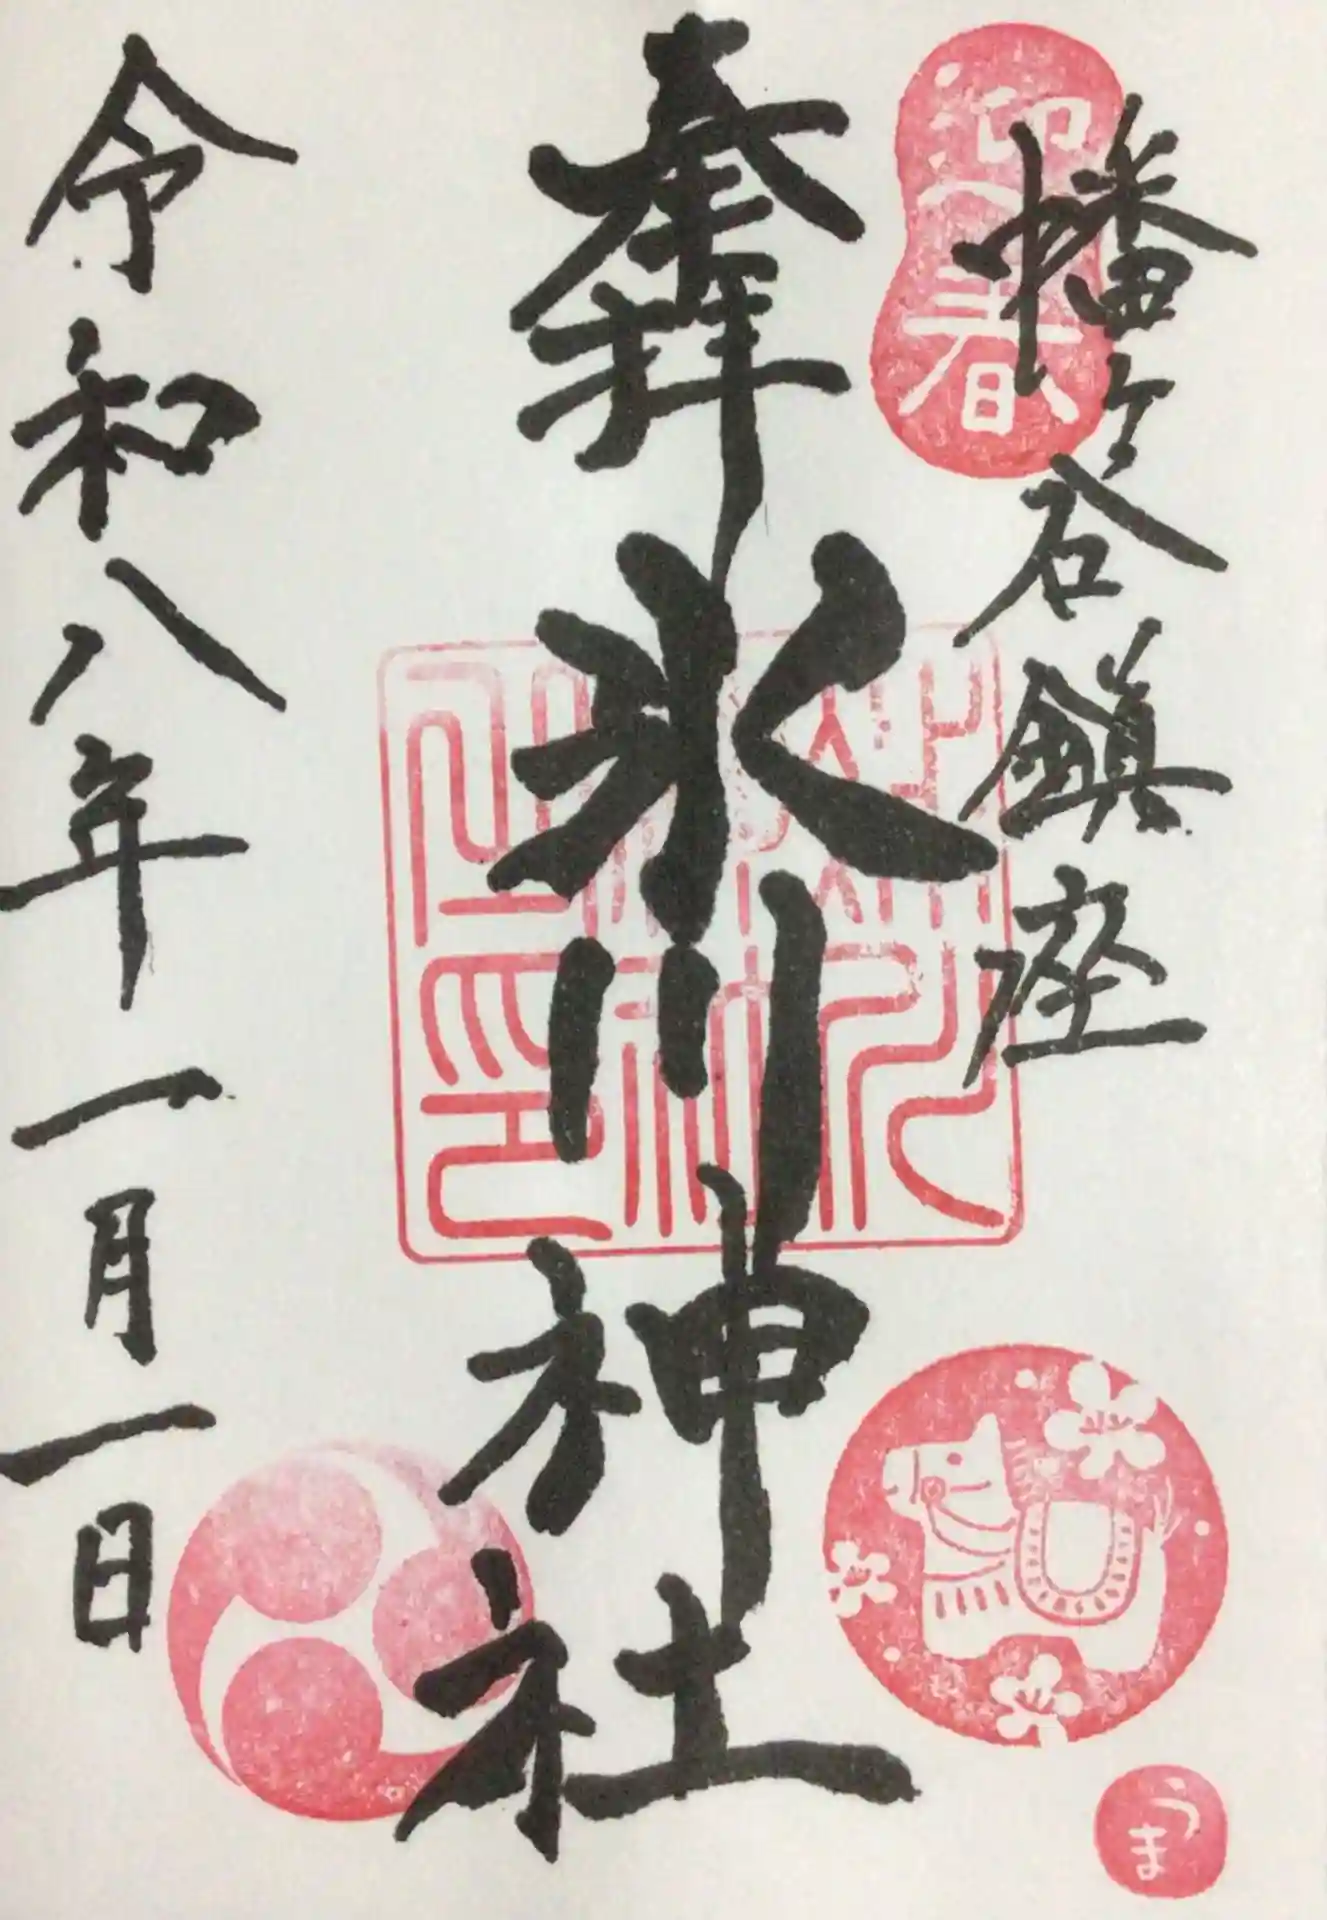 幡ヶ谷鎮座
奉拝
氷川神社
令和八年一月一日
迎春
うま